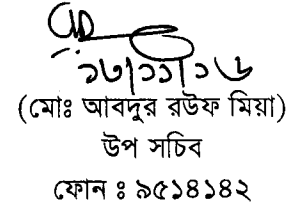 ১৩/১১/১৬
(মোঃ আবদুর রউফ মিয়া)
উপ সচিব
ফোন ঃ ৯৫১৪১৪২